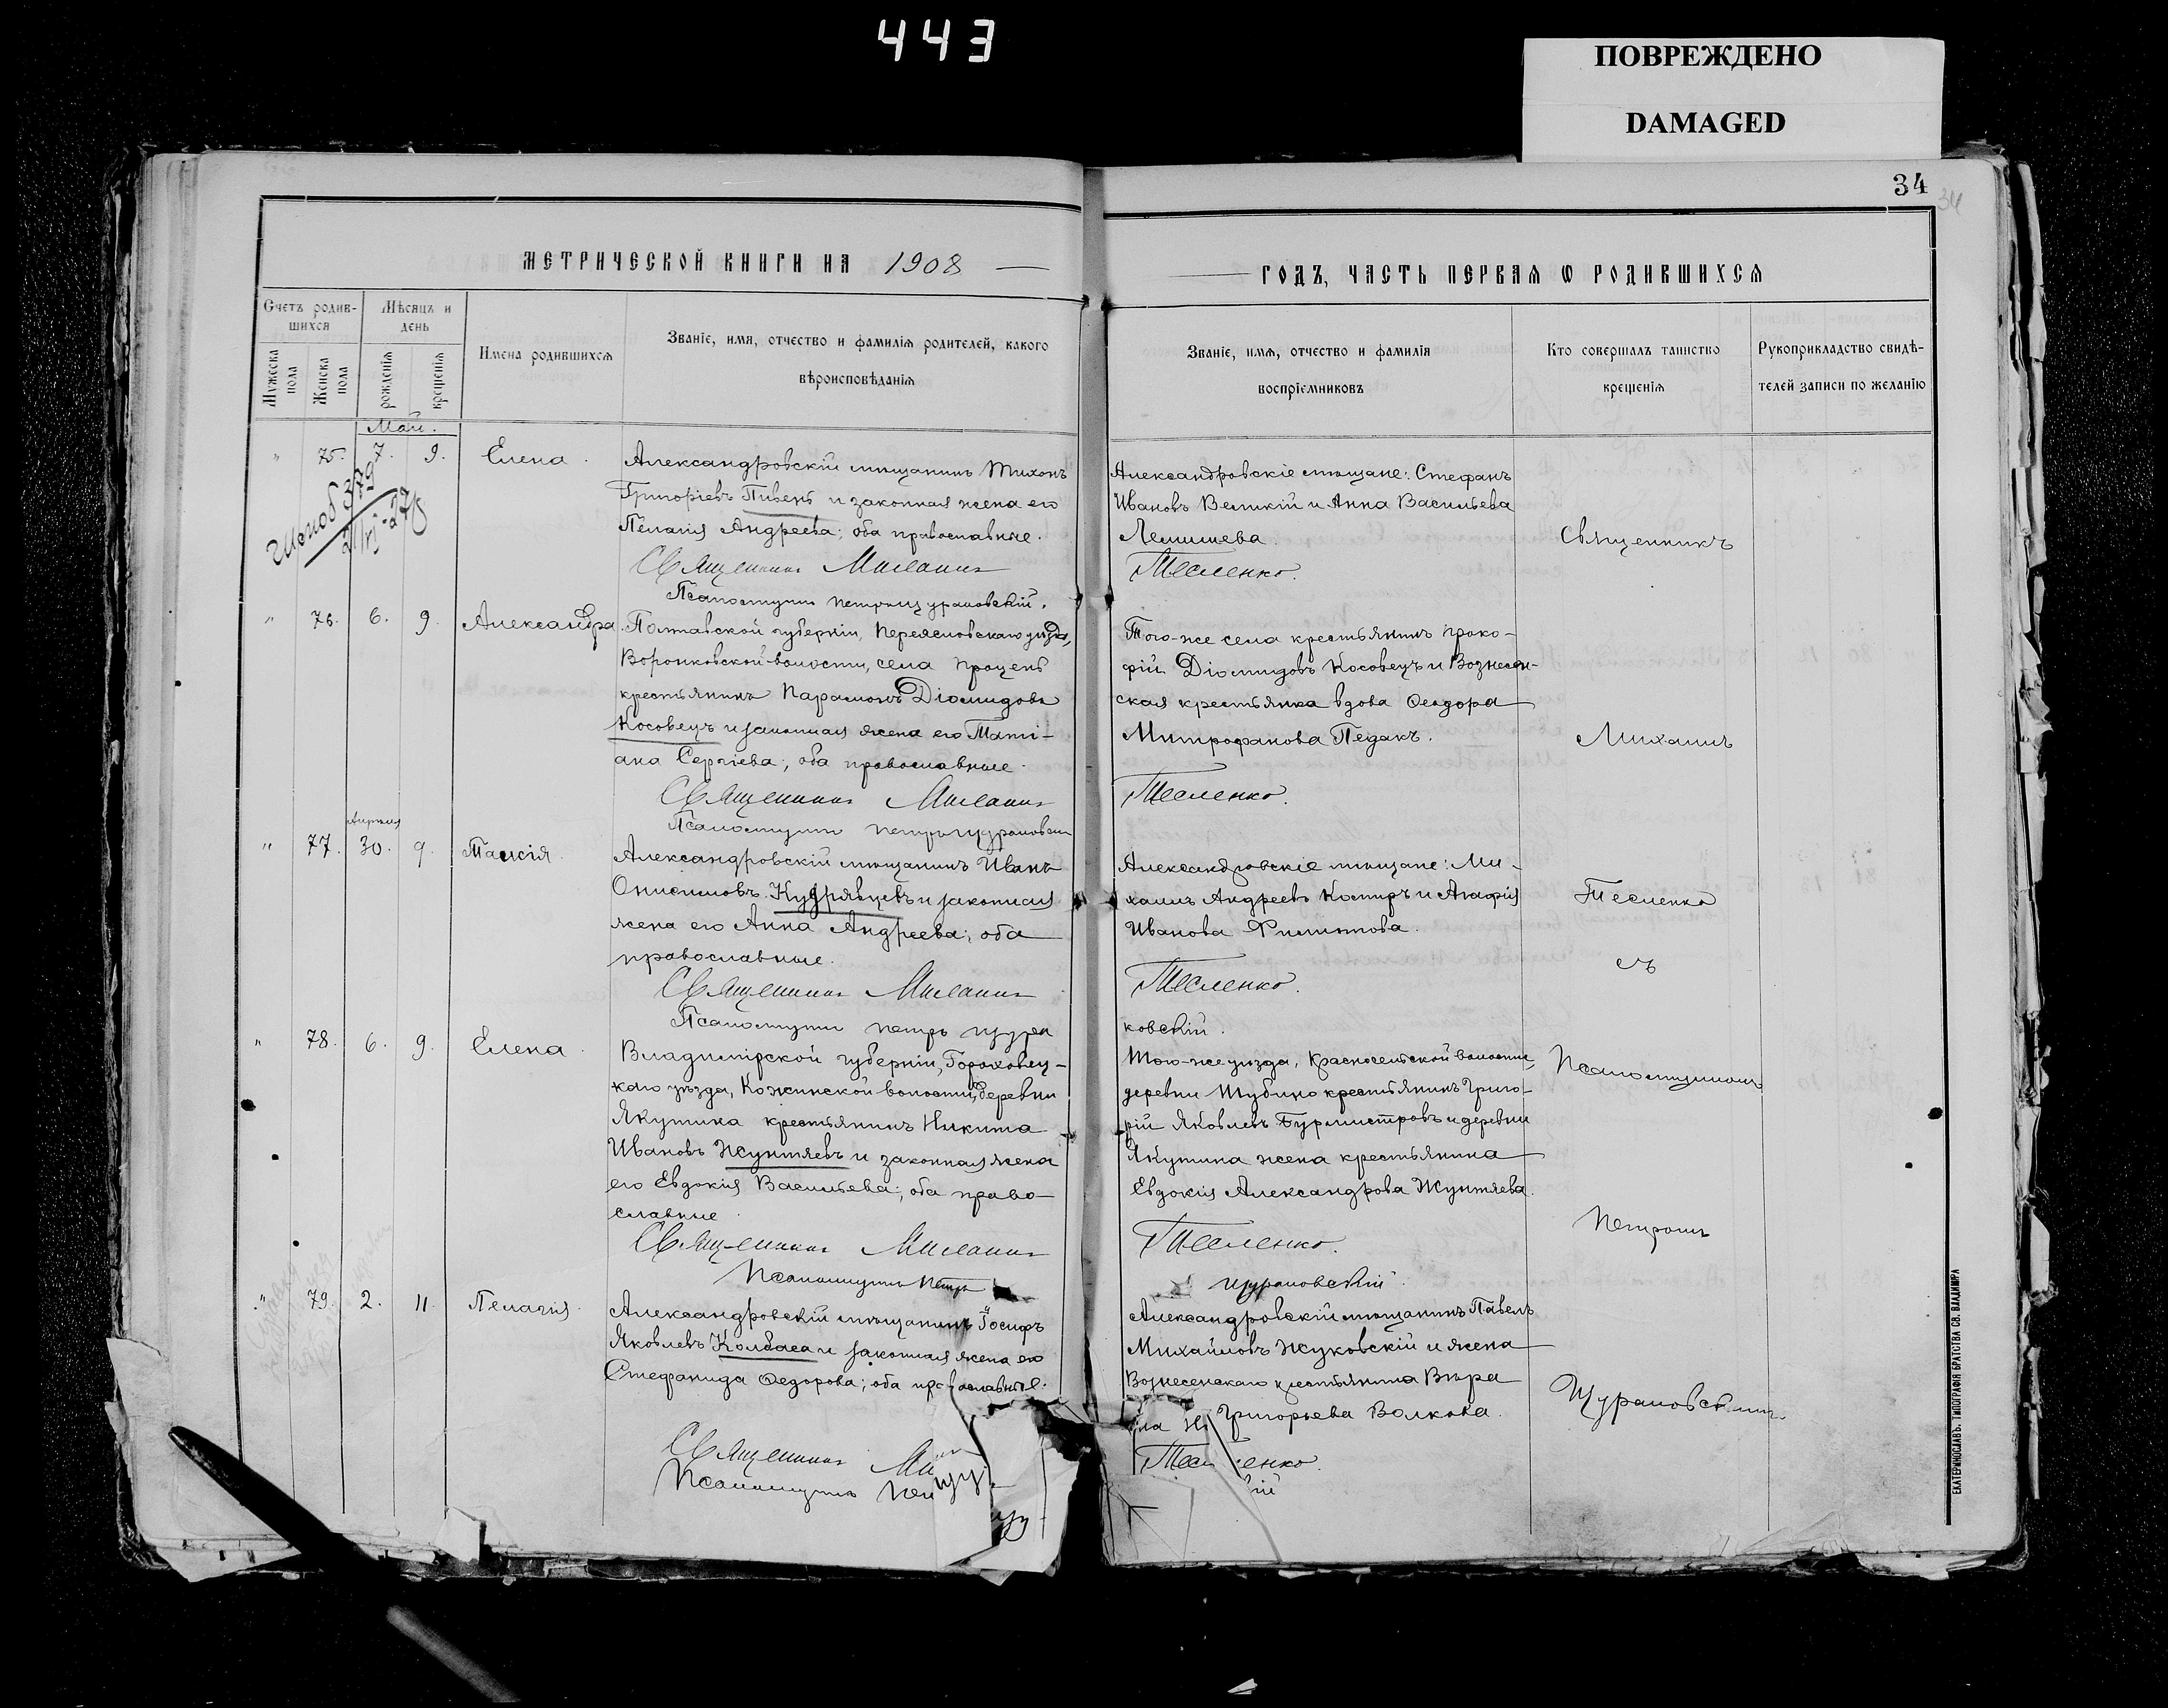 443
ПОВРЕЖДЕНО
DAMAGED
34
34
МЕТРИЧЕСКОЙ КНИГИ НА 1908
Счетъ родив-
шихся
Мѣсяцъ и
день
Мужеска
пола
Женска
пола
рожденія
крещенія
Имена родившихся
Званіе, имя, отчество и фамилія родителей, какого
вѣроисповѣданія
Май.
" 75. 7. 9. Елена.
Александровскій мѣщанинъ Тихонъ
Григоріевъ Пивень и законная жена его
Пелагія Андреева; оба православные.
Священникъ Михаилъ
Псаломщикъ Петръ Щурановскій.
" 76. 6. 9. Александра.
Полтавской губерніи, Переяславскаго уѣзда,
Воронковской волости, села Процевъ
крестьянинъ Парамонъ Діомидовъ
Косовецъ и законная жена его Тати-
ана Сергіева; оба православные.
Священникъ Михаилъ
Псаломщикъ Петръ
Апрѣля
" 77. 30. 9. Таисія.
Александровскій мѣщанинъ Иванъ
Онисимовъ Кудрявцевъ и законная
жена его Анна Андреева; оба
православные.
Священникъ Михаилъ
Псаломщикъ Петръ Щура
" 78. 6. 9. Елена.
Владимірской губерніи, Гороховец-
каго уѣзда, Кожинской волости, деревни
Якутина крестьянинъ Никита
Ивановъ Жунтяевъ и законная жена
его Евдокія Васильева; оба право-
славные.
Священникъ Михаилъ
Псаломщикъ Петръ
" 79. 2. 11. Пелагія.
Александровскій мѣщанинъ Іосифъ
Яковлевъ Колбаса и законная жена его
Стефанида Ѳедорова; оба православные.
Священникъ Ми
Псаломщикъ Пе
ГОДЪ, ЧАСТЬ ПЕРВАЯ Ѡ РОДИВШИХСЯ
Званіе, имя, отчество и фамилія
воспріемниковъ
Кто совершалъ таинство
крещенія
Рукоприкладство свидѣ-
телей записи по желанію
Александровскіе мѣщане: Стефанъ
Ивановъ Великій и Анна Васильева
Тесленко.
Того-же села крестьянинъ Проко-
фій Діомидовъ Косовецъ и Вознесен-
ская крестьянка вдова Ѳеодора
Митрофанова Педакъ.
Тесленко.
Александровскіе мѣщане: Ми-
хаилъ Андреевъ Костыръ и Агафія
Иванова Филиппова.
Тесленко.
ковскій.
Того-же уѣзда, Красносельской волости,
деревни Шубино крестьянинъ Григо-
рій Яковлевъ Бурмистровъ и деревни
Якутина жена крестьянина
Евдокія Александрова Жунтяева.
Тесленко.
Щурановскій.
Александровскій мѣщанинъ Павелъ
Михайловъ Жуковскій и жена
Вознесенскаго крестьянина Вѣра
Григорьева Волкова.
Тесленко.
Священникъ
Михаилъ
Тесленко
съ
Псаломщикомъ
Петромъ
Щурановскимъ
ЕКАТЕРИНОСЛАВЪ. ТИПОГРАФІЯ БРАТСТВА СВ. ВЛАДИМІРА